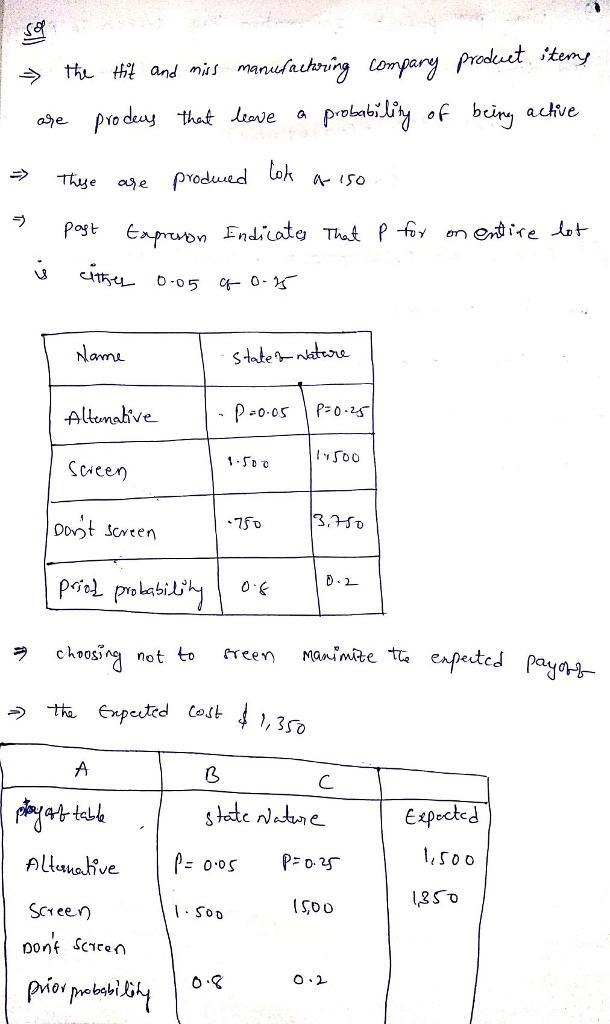 sol
⇒ the Hit and miss manufacturing company product items
are produs that leave a probability of being active
⇒ These are produced lok of 150
⇒ Past Expreson Indicates That P for on entire lot
is either 0.05 of 0.25
Name State of Nature
Alternative P=0.05 P=0.25
Screen 1.500 1,500
Don't screen .750 3,750
Prior probability 0.8 0.2
⇒ choosing not to sreen manimite the expected payoff
⇒ the Expected cost $ 1,350
A B C
payoff table state Nature Expected
Alternative P= 0.05 P=0.25 1,500
Screen 1.500 1500 1350
Don't Screen
prior probability 0.8 0.2